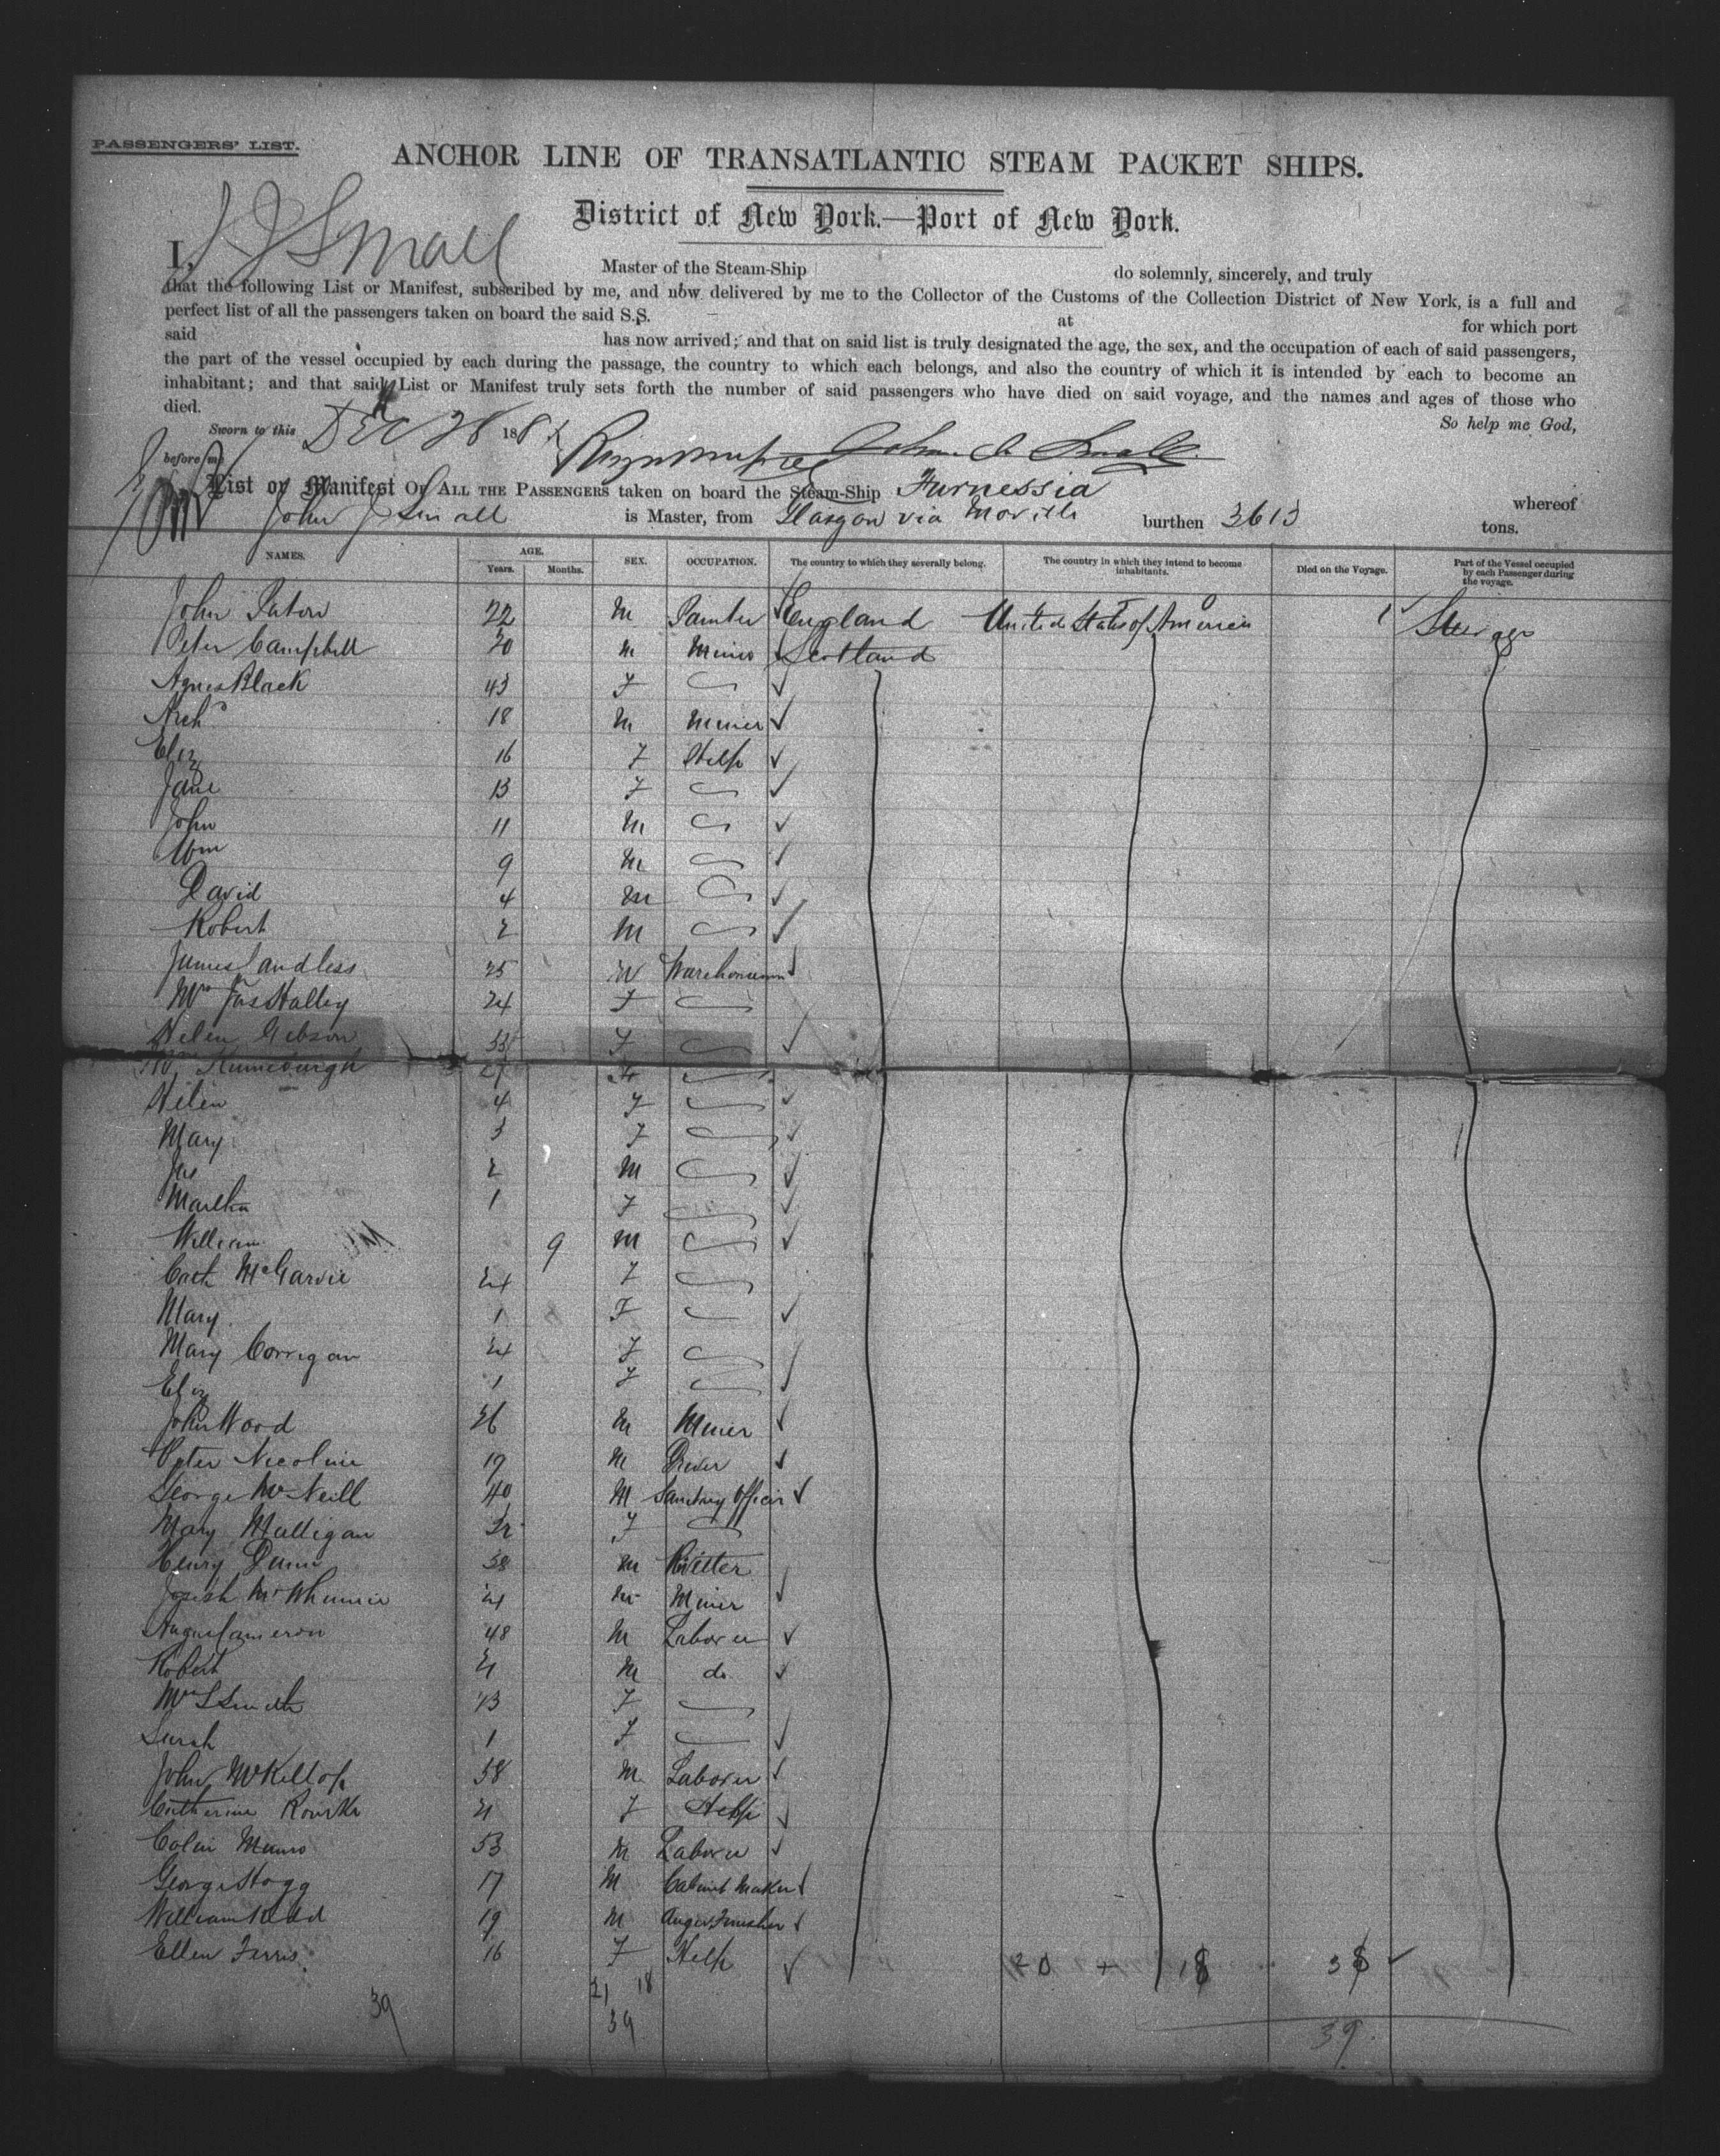 PASSENGERS' LIST.
ANCHOR LINE OF TRANSATLANTIC STEAM PACKET SHIPS.
District of New York.—Port of New York.
I, J J Small Master of the Steam-Ship do solemnly, sincerely, and truly
that the following List or Manifest, subscribed by me, and now delivered by me to the Collector of the Customs of the Collection District of New York, is a full and
perfect list of all the passengers taken on board the said S.S. at for which port
said has now arrived; and that on said list is truly designated the age, the sex, and the occupation of each of said passengers,
the part of the vessel occupied by each during the passage, the country to which each belongs, and also the country of which it is intended by each to become an
inhabitant; and that said List or Manifest truly sets forth the number of said passengers who have died on said voyage, and the names and ages of those who
died. So help me God,
Sworn to this DEC 26 188
before me John J. Small
List or Manifest OF ALL THE PASSENGERS taken on board the Steam-Ship Furnessia whereof
John J Small is Master, from Glasgow via Moville burthen 3613 tons.
NAMES. AGE. Years. Months. SEX. OCCUPATION. The country to which they severally belong. The country in which they intend to become inhabitants. Died on the Voyage. Part of the Vessel occupied by each Passenger during the voyage.
John Paton 22 M Painter England United States of America Steerage
Peter Campbell 20 M Miner Scotland
Agnes Black 43 F
Archd 18 M Miner
Eliz 16 F Help
Jane 13 F
John 11 M
Wm 9 M
David 4 M
Robert 2 M
James Landless 25 M Warehouseman
Mrs Jas Halley 24 F
Helen Gibson 33 F
27 F
Helen 4 F
Mary 3 F
Jas 2 M
Martha 1 F
William 9 M
Cath McGarvie 24 F
Mary 1 F
Mary Corrigan 24 F
Eliz 1 F
John Wood 26 M Miner
Peter Nicolson 19 M
George McNeill 40 M Sanitary Officer
Mary Mulligan F
Henry Dunn 38 M Riveter
Joseph McWhinnie 21 M Miner
Angus Cameron 48 M Laborer
Robert 21 M do
Mrs Smith 43 F
Sarah 1 F
John McKillop 38 M Laborer
Catherine Rourke 21 F Help
Colin Munro 53 M Laborer
George Hogg 17 M Cabinet Maker
William Kidd 19 M
Ellen Ferris 16 F Help
20 + 18 38
21 18
39 39 39